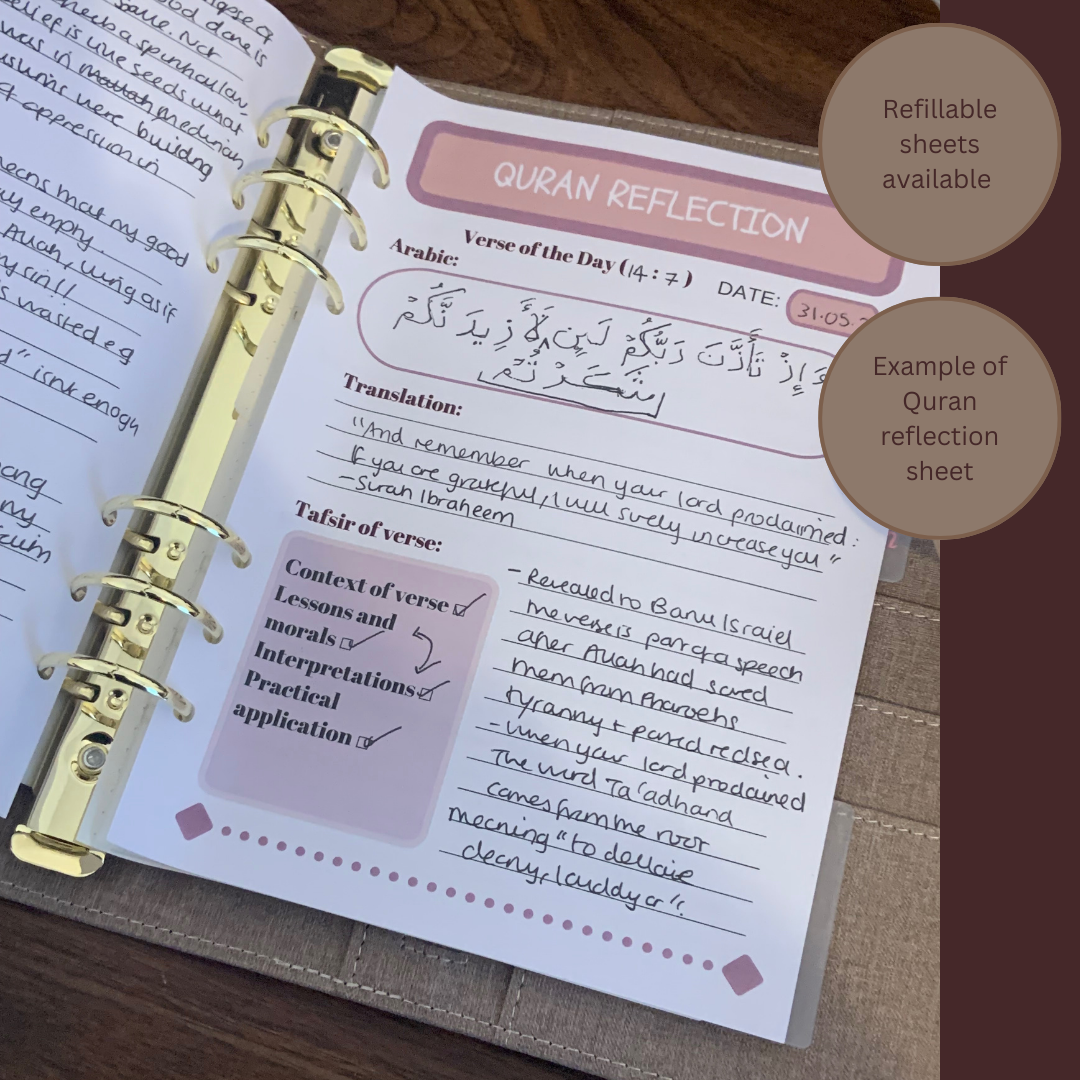 lapse of
good done is
same. Not
herb a spinhaulau
elief is une seeds what
was in Makkah medinian
usurins were buildng
of oppression in
means that my good
ay empty.
Allah, living as if
my sin!!
is wasted eg
d" isnt enough
ong
my
QURAN REFLECTION
Verse of the Day (14:7)
DATE: 31.05.
Arabic:
وَإِذْ تَأَذَّنَ رَبُّكُمْ لَئِن لَأَزِيدَنَّكُمْ
شَكَرْتُمْ
Translation:
"And remember when your lord proclaimed:
If you are grateful, I will surely increase you"
-Surah Ibraheem
Tafsir of verse:
Context of verse
Lessons and
morals
Interpretations
Practical
application
- Revealed to Banu Israiel
the verse is part of a speech
after Allah had saved
them from Pharoehs
tyranny + parted red sea.
- When your lord proclaimed
The word Ta'adhand
comes from the root
meaning "to declare
clearly, loudly or".
Refillable
sheets
available
Example of
Quran
reflection
sheet